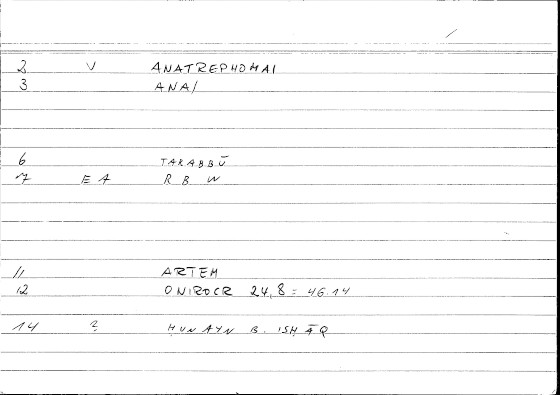 2 V ANATREPHOMAI
3 ANA/
6 TARABBŪ
7 EA RBW
11 ARTEM
12 ONIROCR 24,8 = 46.14
14 ? ḤUNAYN B. ISḤĀQ